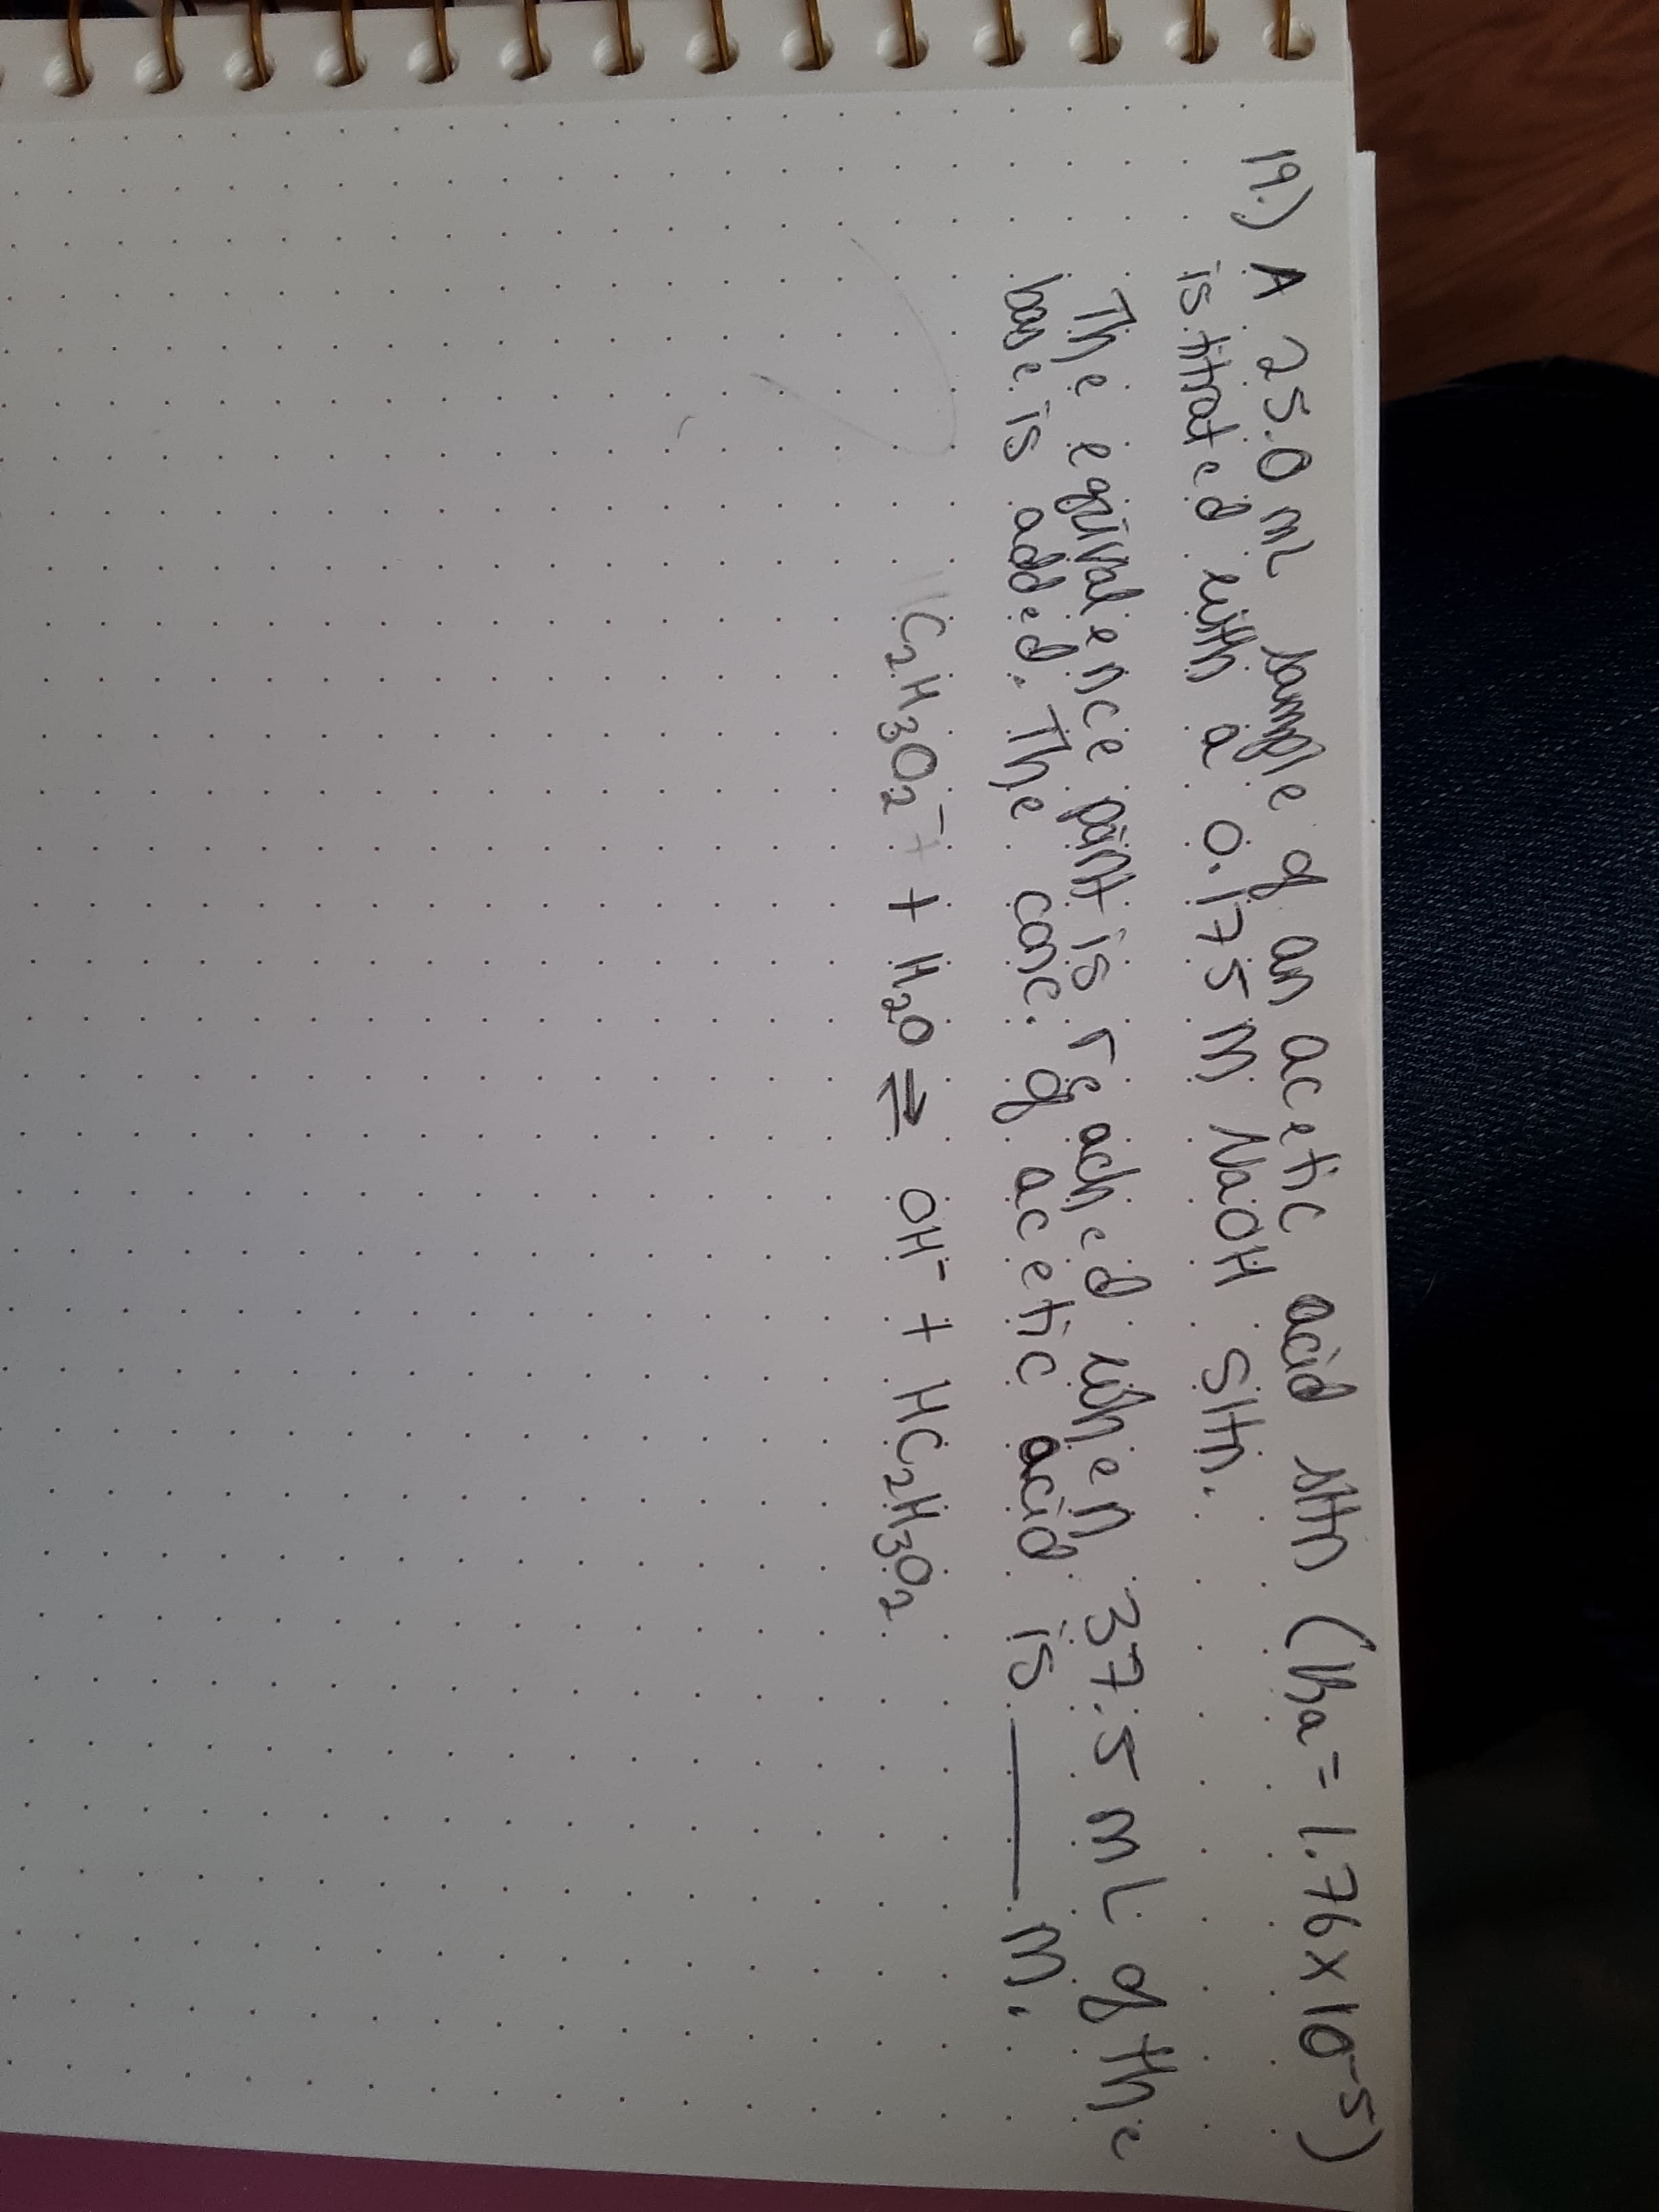 19.) A 25.0 mL sample of an acetic acid sltn (Ka = 1.76 x 10⁻⁵)
is titrated with a 0.175 M NaOH sltn.
The equivalence point is reached when 37.5 mL of the
base is added. The conc. of acetic acid is ______ M.
C₂H₃O₂⁻ + H₂O ⇌ OH⁻ + HC₂H₃O₂